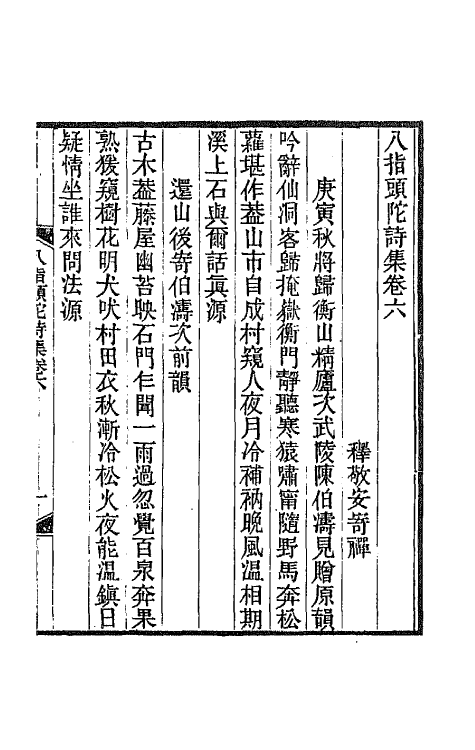 八指頭陀詩集卷六
釋敬安寄禪
庚寅秋將歸衡山精廬次武陵陳伯濤見贈原韻
吟辭仙洞客歸掩嶽衡門靜聽寒猿嘯甯隨野馬奔松
蘿堪作葢山市自成村窺人夜月冷補衲晚風溫相期
溪上石與爾話眞源
還山後寄伯濤次前韻
古木葢藤屋幽苔映石門乍聞一雨過忽覺百泉奔果
熟猨窺樹花明犬吠村田衣秋漸冷松火夜能溫鎭日
疑情坐誰來問法源
八指頭陀詩集卷六
一